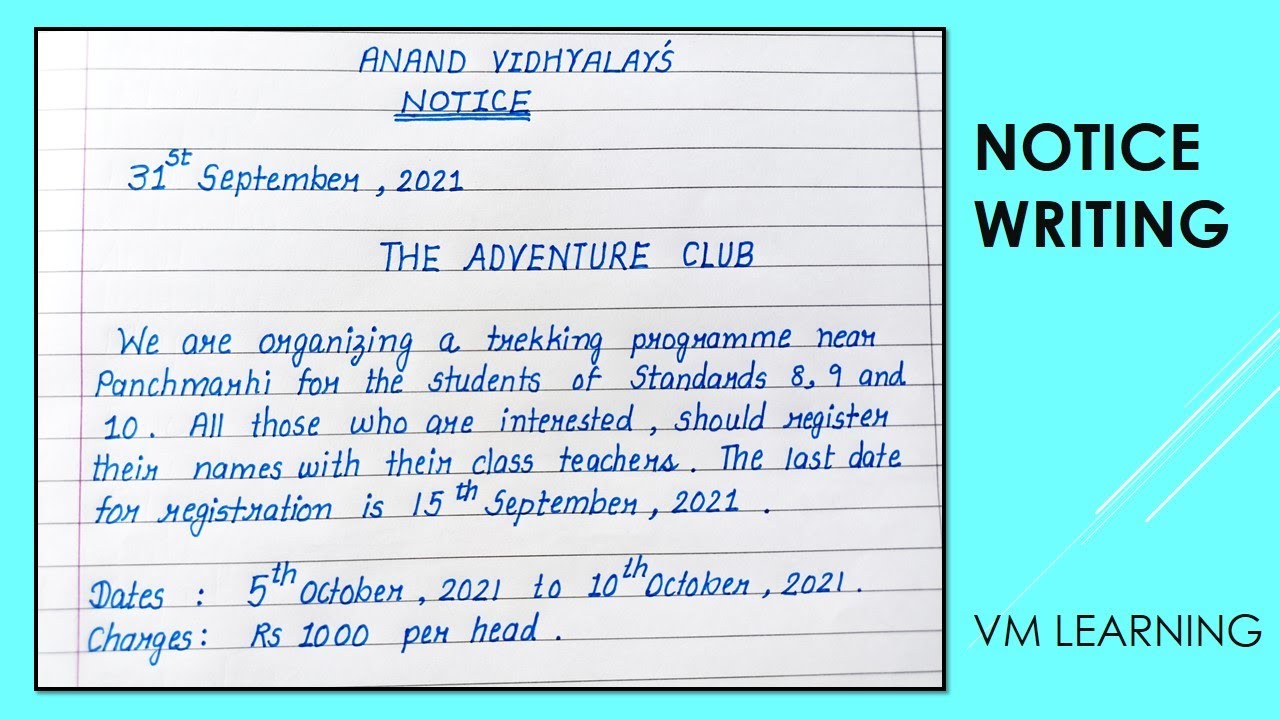 ANAND VIDHYALAY'S
NOTICE
31st September, 2021
THE ADVENTURE CLUB
We are organizing a trekking programme near
Panchmarhi for the students of Standards 8, 9 and
10. All those who are interested, should register
their names with their class teachers. The last date
for registration is 15th September, 2021.
Dates : 5th October, 2021 to 10th October, 2021.
Charges: Rs 1000 per head.
NOTICE
WRITING
VM LEARNING